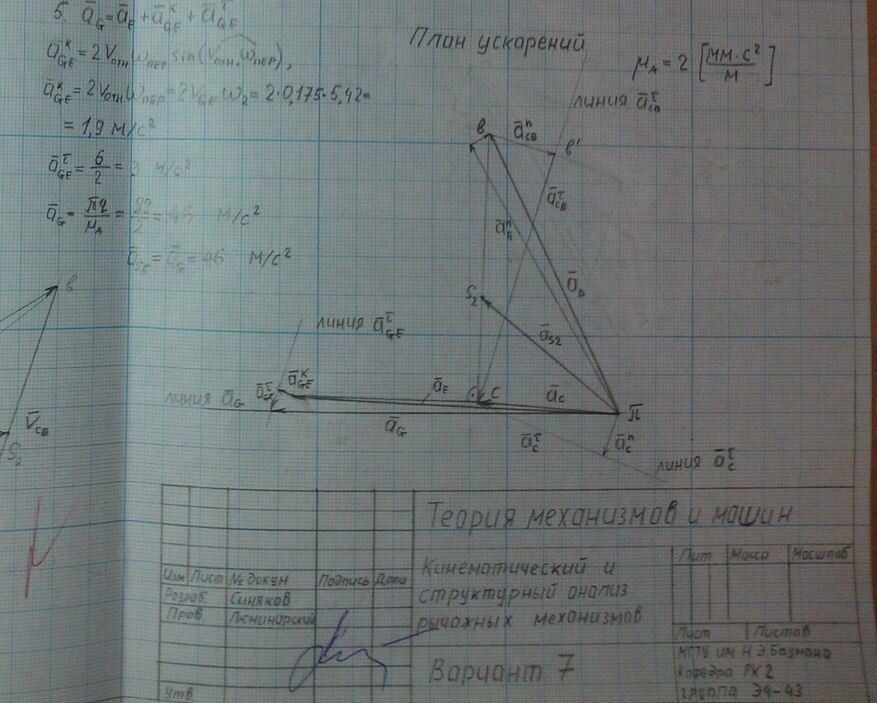 5. ā_G = ā_E + ā^K_GE + ā^τ_GE
ā^K_GE = 2 V_отн ω_пер sin(V_отн, ω_пер),
ā^K_GE = 2 V_отн ω_пер = 2 V_GE ω_2 = 2·0,175·5,42 =
= 1,9 м/с²
ā^τ_GE = 6/2 = 3 м/с²
ā_G = πq/μ_A = /2 = м/с²
ā_S5 = ā_G = 46 м/с²
План ускорений
μ_A = 2 [мм·с²/м]
линия ā^τ_CB
в
ā^n_CB
в'
ā^τ_CB
ā^n_B
ā_B
S_2
ā_S2
линия ā^τ_GE
ā^K_GE
линия ā_G
ā^τ_GE
ā_E
C
ā_C
π
ā_G
ā^τ_C
ā^n_C
линия ā^τ_C
в
V̄_CB
S_2
Теория механизмов и машин
Кинематический и
структурный анализ
рычажных механизмов
Вариант 7
Изм Лист № докум Подпись Дата
Разраб. Синяков
Пров Люминарский
Утв
Лит Масса Масштаб
Лист Листов
МГТУ им Н Э Баумана
Кафедра РК 2
группа Э4-43